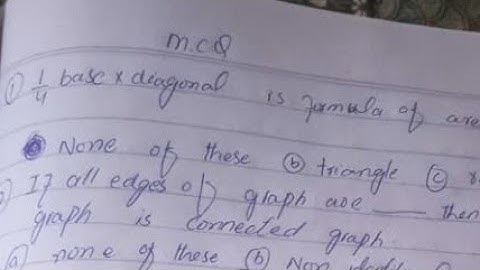 M.C.Q
① 1/4 base x diagonal is formula of are
None of these ⓑ triangle ⓒ
If all edges of graph are ___ then
graph is connected graph.
ⓐ none of these ⓑ Non